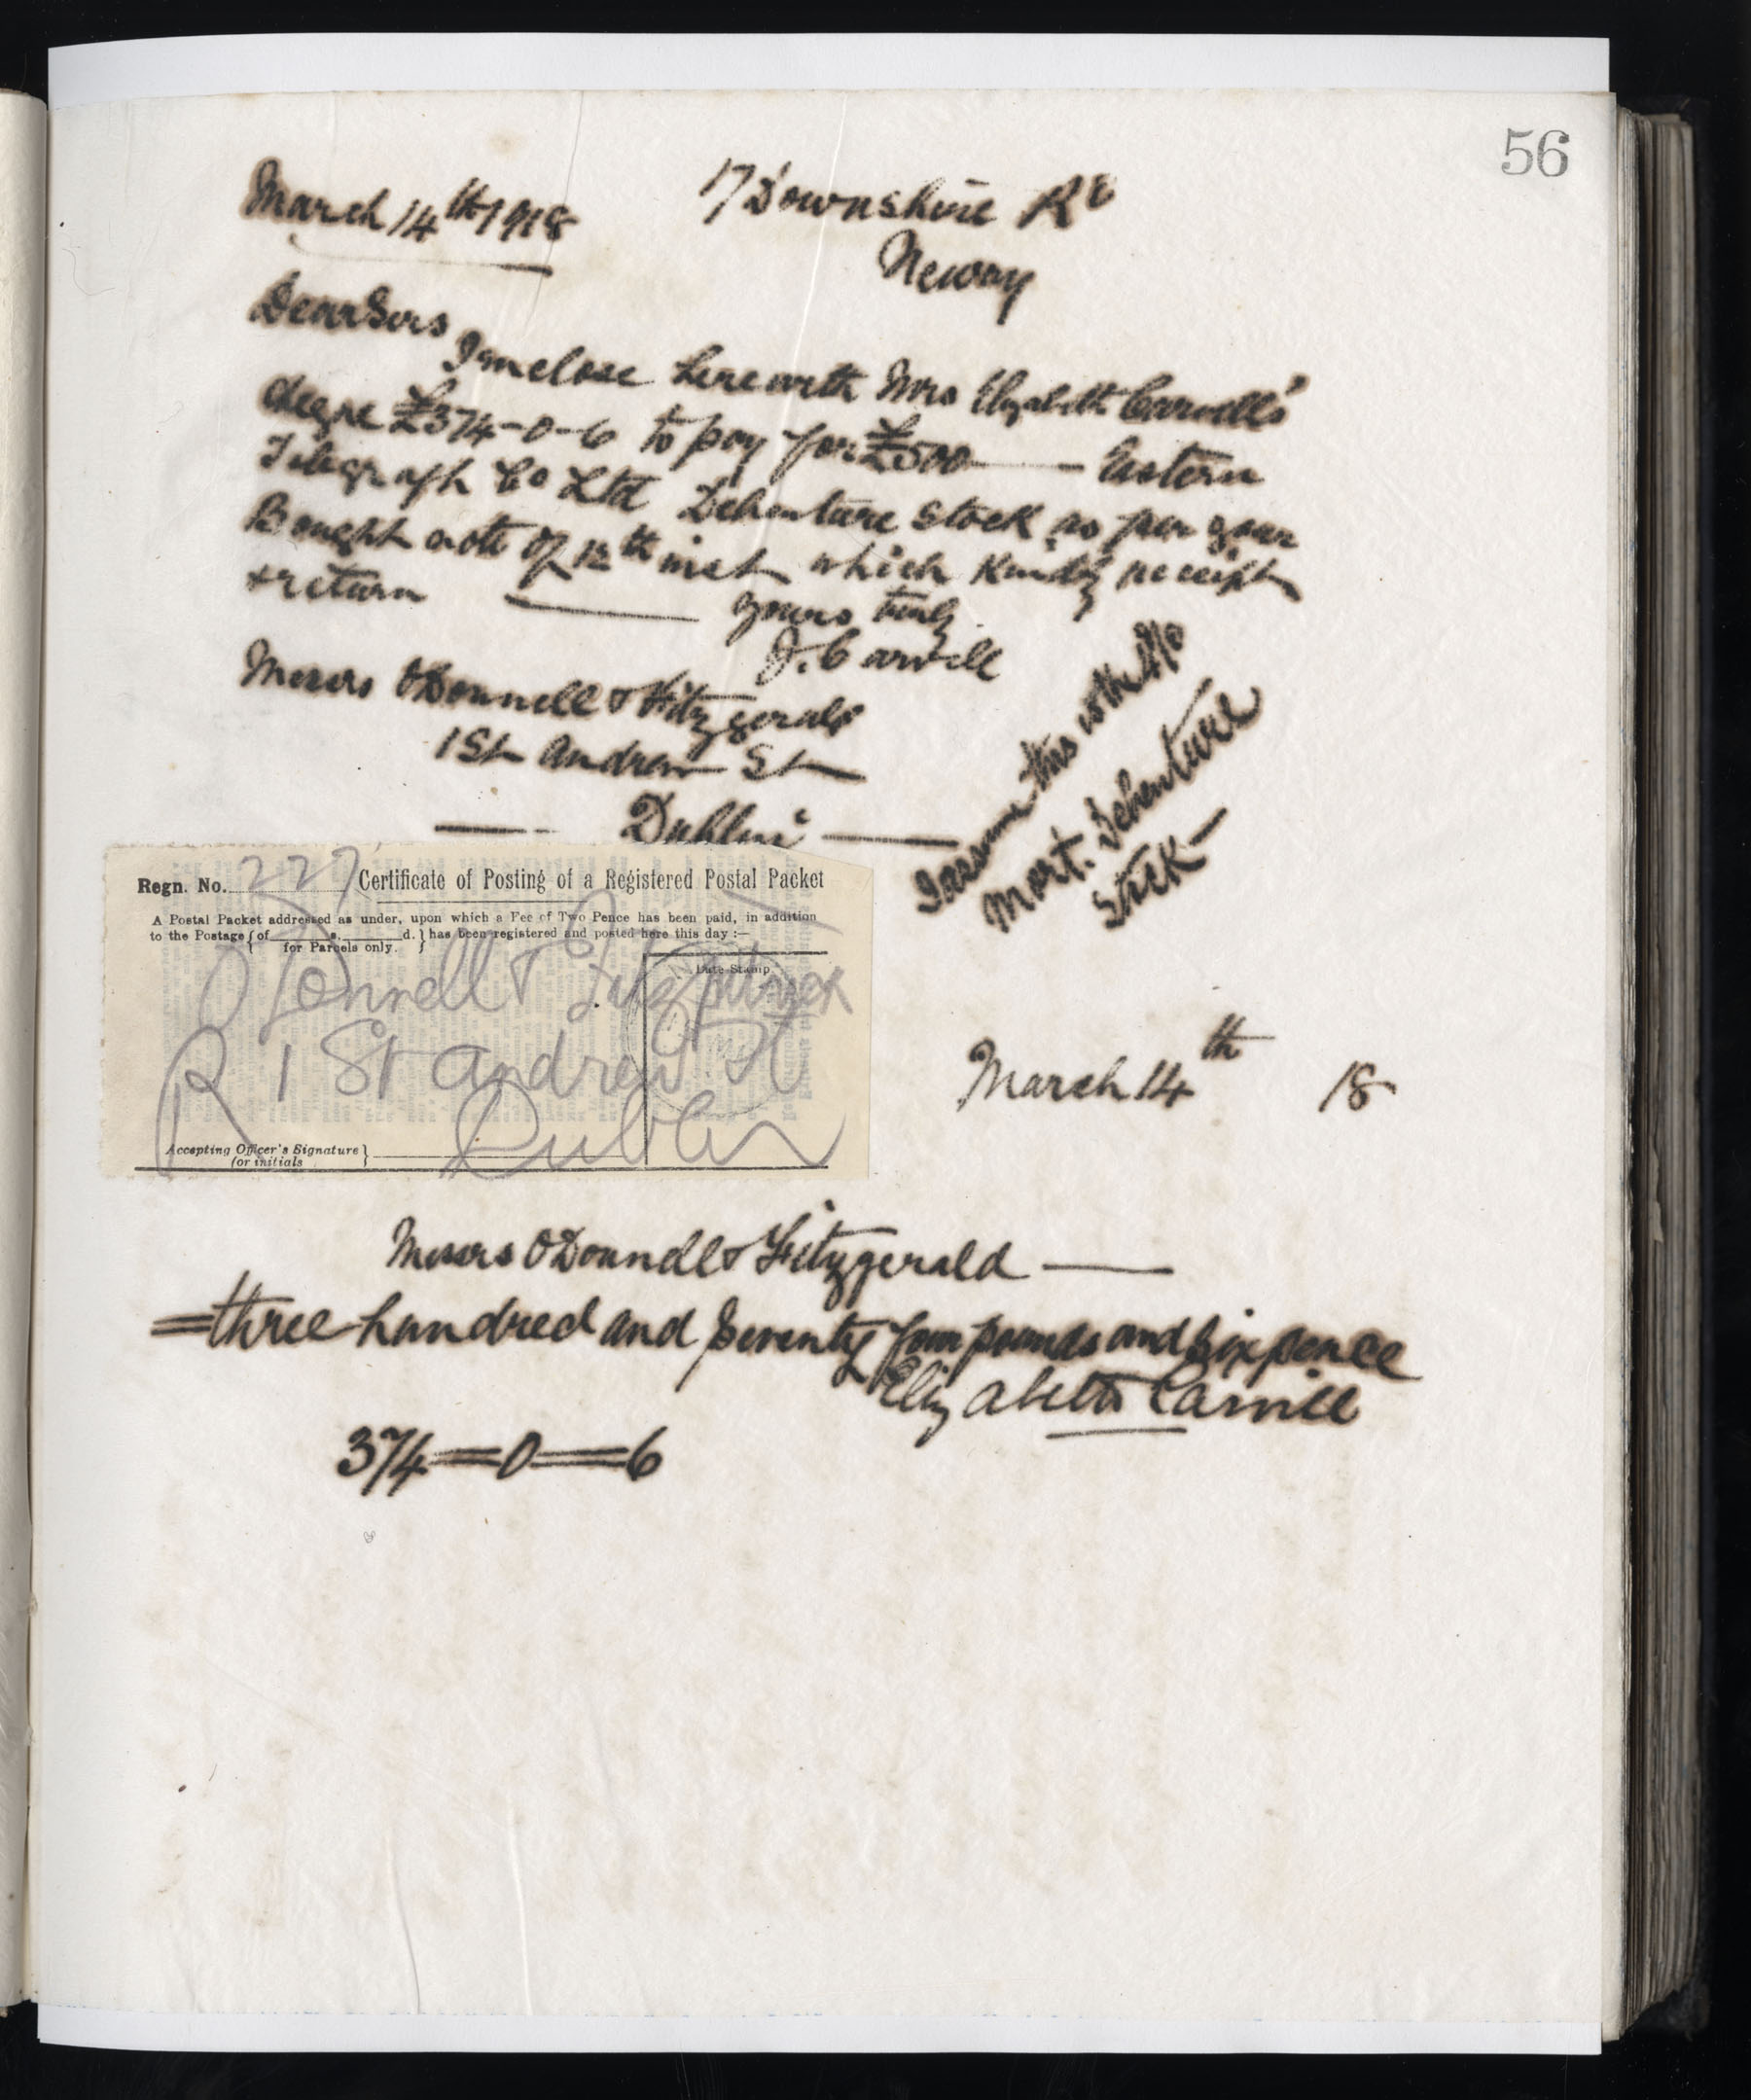 56
March 14th 1918
17 Downshire Rd
Newry
Dear Sirs
I enclose herewith Mrs Elizabeth Carvill's
cheque £374-0-6 to pay for £500 — Eastern
Telegraph Co Ltd Debenture stock as per your
Bought note of 12th inst which kindly receipt
+ return — yours truly
J. Carvill
Messrs O'Donnell & Fitzgerald
1 St Andrew St
— Dublin —
I assume this is the 4%
Mort. Debenture
Stock —
Regn. No. 227 Certificate of Posting of a Registered Postal Packet
A Postal Packet addressed as under, upon which a Fee of Two Pence has been paid, in addition
to the Postage { of s. d. } has been registered and posted here this day :—
for Parcels only.
Date Stamp
O'Donnell &
R 1 St Andrew St
Dublin
Accepting Officer's Signature }
or initials
March 14th 18
Messrs O'Donnell & Fitzgerald —
= three hundred and seventy four pounds and six pence
Elizabeth Carvill
374 = 0 = 6